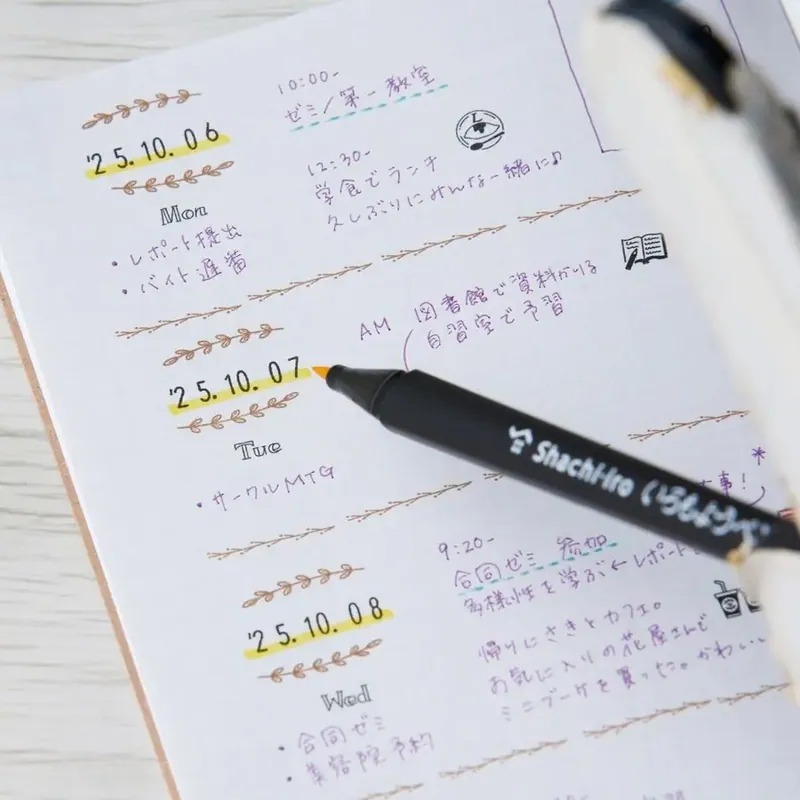 '25.10.06
Mon
・レポート提出
・バイト遅番
10:00-
ゼミ/第一教室
12:30-
学食でランチ
久しぶりにみんな一緒に♪
'25.10.07
Tue
・サークルMTG
AM 図書館で資料かりる
自習室で予習
事!
'25.10.08
Wed
・合同ゼミ
・美容院予約
9:20-
合同ゼミ 参加
多様性を学ぶ←レポート
帰りにさきとカフェ。
お気に入りの花屋さんで
ミニブーケを買った。かわい
Shachi-iro いろもよう